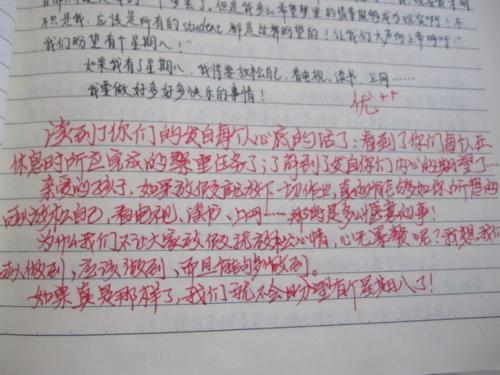 不只是我，应该是所有的student都是这样盼望的！让我们大声向上帝呼唤：“
我们盼望有个星期八！”
如果我有了星期八，我将要放松自己，看电视、读书、上网……
我要做好多好多快乐的事情！
优++
读到了你们的发自每个人心底的话了；看到了你们每个人在
休息时所要完成的繁重任务了；了解到了发自你们内心的期望了……
亲爱的孩子，如果放假真能放下一切作业，真的能够如你所想的
放松自己，看电视、读书、上网……那将是多么惬意的事！
为什么我们不让大家放假就放松心情，心无
做到，应该做到，而且能够做到。
如果真是那样了，我们就不会盼望有个星期八了！